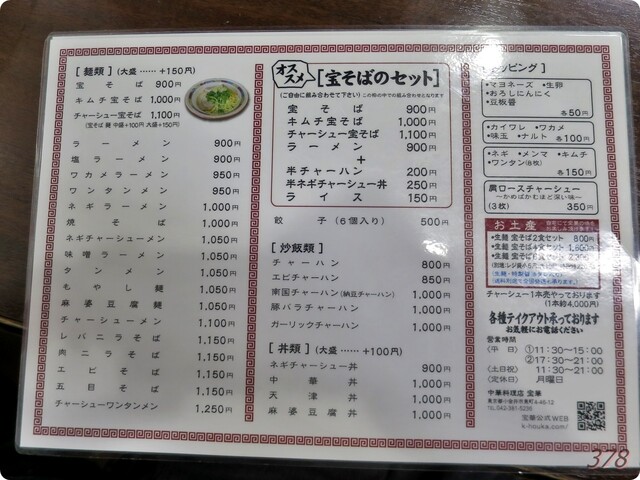 [ 麺類 ] (大盛 …… +150円)
宝そば 900円
キムチ宝そば 1,000円
チャーシュー宝そば 1,100円
(宝そば 麺 中盛+100円 大盛+150円)
ラーメン 900円
塩ラーメン 900円
ワカメラーメン 950円
ワンタンメン 950円
ネギラーメン 1,000円
焼そば 1,000円
ネギチャーシューメン 1,050円
味噌ラーメン 1,050円
タンメン 1,050円
もやし麺 1,050円
麻婆豆腐麺 1,050円
チャーシューメン 1,100円
レバニラそば 1,150円
肉ニラそば 1,150円
エビそば 1,150円
五目そば 1,150円
チャーシューワンタンメン 1,250円
オススメ [宝そばのセット]
(ご自由に組み合わせて下さい) この枠の中での組み合わせとなります
宝そば 900円
キムチ宝そば 1,000円
チャーシュー宝そば 1,100円
ラーメン 900円
+
半チャーハン 200円
半ネギチャーシュー丼 250円
ライス 150円
餃子 (6個入り) 500円
[ 炒飯類 ]
チャーハン 800円
エビチャーハン 850円
南国チャーハン (納豆チャーハン) 1,000円
豚バラチャーハン 1,000円
ガーリックチャーハン 1,000円
[ 丼類 ] (大盛 …… +100円)
ネギチャーシュー丼 900円
中華丼 1,000円
天津丼 1,000円
麻婆豆腐丼 1,000円
ッピング ]
•マヨネーズ •生卵
•おろしにんにく
•豆板醤
各50円
•カイワレ •ワカメ
•味玉 •ナルト 各100円
•ネギ •メンマ •キムチ
•ワンタン(8枚) 各150円
肩ロースチャーシュー
〜かめばかむほど深い味〜
(3枚) 350円
お土産
•生麺 宝そば2食セット 800円
•生麺 宝そば4食セット 1,600円
チャーシュー1本売やっております
(1本約4,000円)
各種テイクアウト承っております
お気軽にお電話ください
営業時間
(平 日) ①11:30~15:00
②17:30~21:00
(土日祝) 11:30~21:00
(定休日) 月曜日
中華料理店 宝華
東京都小金井市東町4-46-12
TEL 042-381-5235
宝華公式WEB
k-houka.com/
378